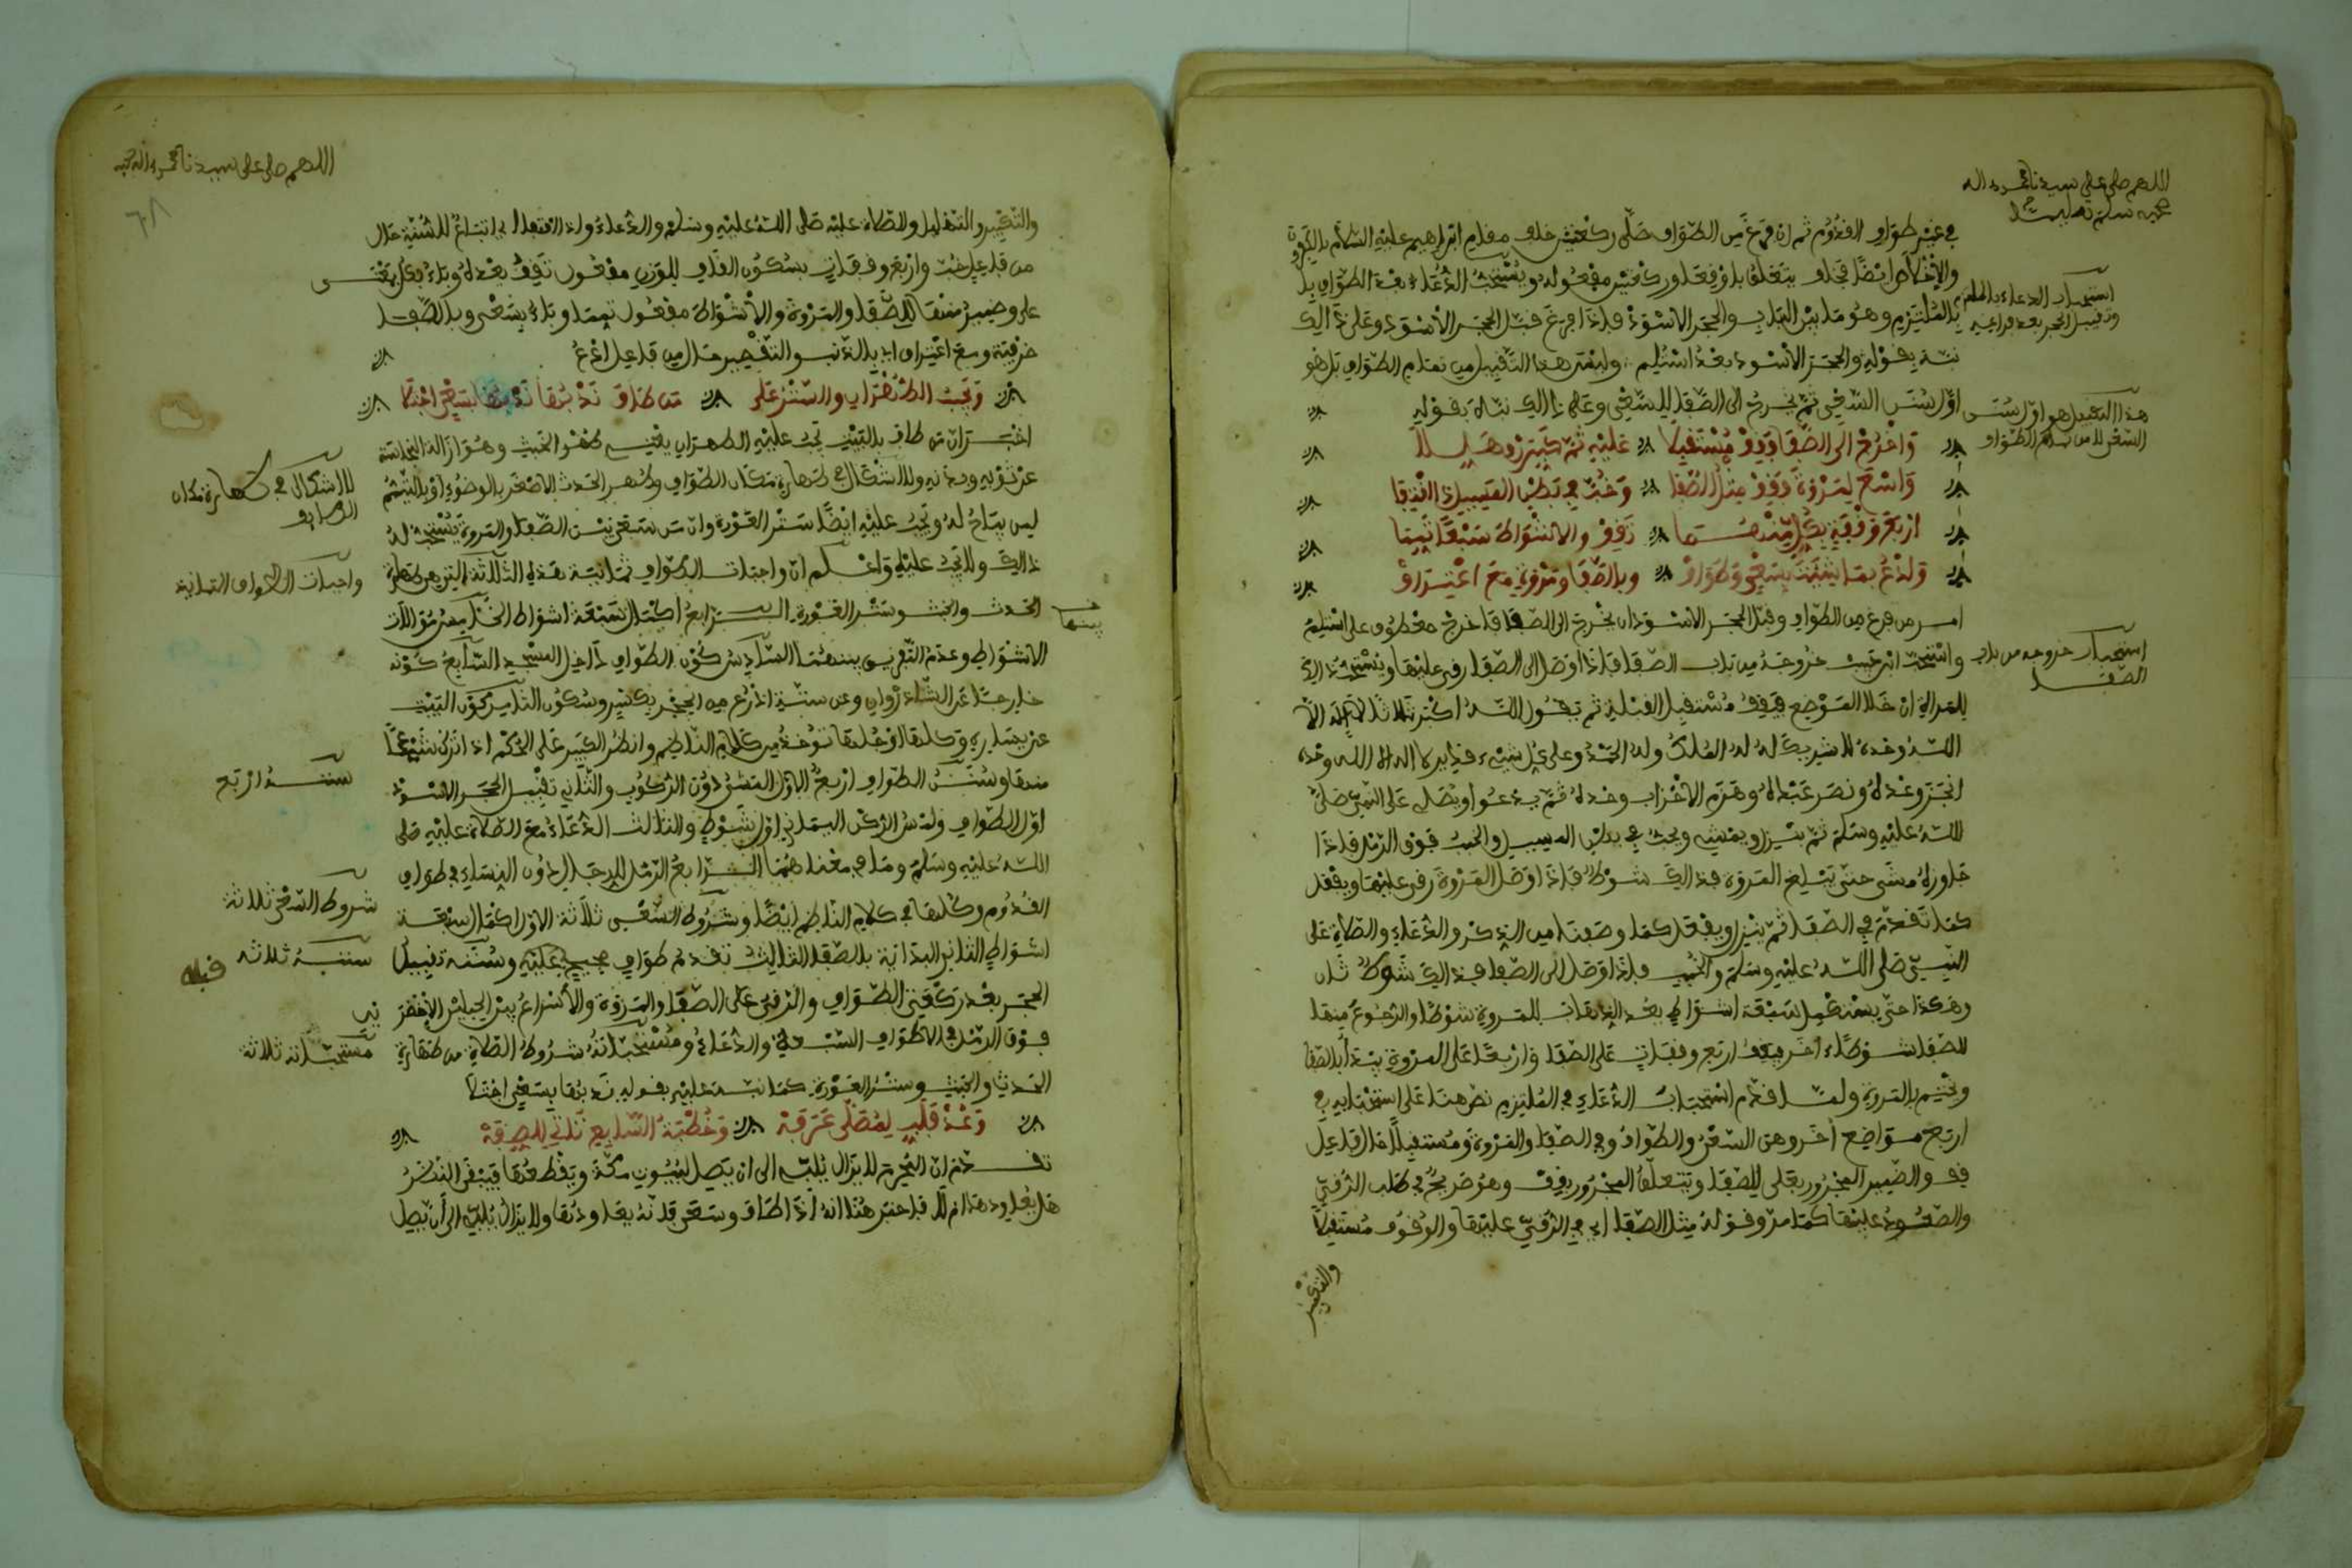 اللهم صل على سيدنا محمد واله
وصحبه وسلم تسليما
في غير طواف القدوم ثم ان فرغ من الطواف صلى ركعتين خلف مقام ابراهيم عليه السلام بالكافرون
والاخلاص ايضا فخلف يتعلق باوقعا وركعتين مفعوله ويستحب الدعاء بعد الطواف
بالملتزم وهو ما بين الباب والحجر الاسود فاذا فرغ قبل الحجر الاسود وعلى ذالك
نبه بقوله والحجر الاسود بعد استلم وليس هذا التقبيل من تمام الطواف بل هو
اول سنن السعي ثم يخرج الى الصفا للسعي وعلى ذالك نبه بقوله
واخرج الى الصفا فقف مستقبلا عليه ثم كبرن وهللا
واسع لمروة فقف مثل الصفا وخب في بطن المسيل ذا اقتفا
اربع وقفات بكل منهما تقف والاشواط سبعا تمما
وادع بما شئت بسعي وطواف وبالصفا ومروة مع اعتراف
امر من فرغ من الطواف وقبل الحجر الاسود ان يخرج الى الصفا فاخرج معطوف على استلم
واستحب ابن حبيب خروجه من باب الصفا فاذا وصل الى الصفا رقى عليها ويستحب ذالك
للمراة ان خلا الموضع فيقف مستقبل القبلة ثم يقول الله اكبر ثلاثا لا اله الا
الله وحده لا شريك له له الملك وله الحمد وهو على كل شيء قدير لا اله الا الله وحده
انجز وعده ونصر عبده وهزم الاحزاب وحده ثم يدعوا ويصلي على النبي صلى
الله عليه وسلم ثم ينزل ويمشي ويخب في بطن المسيل والخبب فوق الرمل فاذا
جاوزه مشى حتى يبلغ المروة فذالك شوط فاذا وصل المروة رقى عليها ويفعل
كما تقدم في الصفا ثم ينزل ويفعل كما وصفنا من الذكر والدعاء والصلاة على
النبي صلى الله عليه وسلم والخبب فاذا وصل الى الصفا فذالك شوط ثان
وهكذا حتى يستكمل سبعة اشواط يعد الذهاب للمروة شوطا والرجوع منها
للصفا شوطا اخر فيقف اربع وقفات على الصفا واربعا على المروة يبتدأ بالصفا
ويختم بالمروة ولما قدم استحباب الدعاء في الملتزم نص هنا على استحبابه في
اربع مواضع اخر وهي السعي والطواف وفي الصفا والمروة ومستقبلا حال فاعل
قف والضمير المجرور بعلى للصفا ويتعلق المجرور بقف وهو صريح في طلب الرقي
والصعود عليها كما مر وقوله مثل الصفا اي في الرقي عليها والوقوف مستقبلا
والتكبير
استحباب الدعاء بالملتزم
وتقبيل الحجر بعد فراغه
هذا التقبيل هو اول سنن
السعي لا من تمام الطواف
استحباب خروجه من باب
الصفا
اللهم صل على سيدنا محمد واله وصحبه
٦٨
والتكبير والتهليل والصلاة عليه صلى الله عليه وسلم والدعاء
من فاعل خب واربع وقفات بسكون القاف للوزن مفعول تقف بعده وباء بكل بمعنى
على وضمير منهما للصفا والمروة والاشواط مفعول تمما وباء بسعي وبالصفا
ظرفية ومع اعتراف اي بالذنب والتقصير حال من فاعل ادع
ويجب الطهران والستر على من طاف ندبها بسعي اجتلا
اخبر ان من طاف بالبيت يجب عليه الطهران يعني طهر الخبث وهو ازالة النجاسة
عن ثوبه وبدنه ولا اشكال في طهارة مكان الطواف وطهر الحدث الاصغر بالوضوء او بالتيمم
لمن يباح له ويجب عليه ايضا ستر العورة وان من سعى بين الصفا والمروة يستحب له
ذالك ولا يجب عليه واعلم ان واجبات الطواف ثمانية هذه الثلاثة التي هي طهارة
الحدث والخبث وستر العورة الرابع اكمال سبعة اشواط الخامس موالاة
الاشواط وعدم التفريق بينهما السادس كون الطواف داخل المسجد السابع كونه
خارجا عن الشاذروان وعن ستة اذرع من الحجر بكسر وسكون الثامن كون البيت
عن يساره وكلها او جلها توخذ من كلام الناظم وانظر الكبير على الحكم اذا ترك شيئا
منها وسنن الطواف اربع الاول المشي دون الركوب والثاني تقبيل الحجر الاسود
اول الطواف ولمس الركن اليماني اول شوط والثالث الدعاء مع الصلاة عليه صلى
الله عليه وسلم وما في معناهما الرابع الرمل للرجال دون النساء في طواف
القدوم وكلها في كلام الناظم ايضا وشروط السعي ثلاثة الاول اكمال سبعة
اشواط الثاني البداية بالصفا الثالث تقدم طواف صحيح عليه وسننه تقبيل
الحجر بعد ركعتي الطواف والرقي على الصفا والمروة والاسراع بين الميلين الاخضرين
فوق الرمل في الاطواف السبعة والدعاء ومستحباته شروط الصلاة من طهارة
الحدث والخبث وستر العورة كما نبه عليه بقوله ندبها بسعي اجتلا
وعد فلب لمصلى عرفة وخطبة السابع تاتي للصفة
تقدم ان المحرم لا يزال يلبي الى ان يصل لبيوت مكة ويقطعها فيبقى النظر
هل يعاودها ام لا فاخبر هنا انه اذا طاف وسعى فانه يعاودها ولا يزال يلبي الى ان يصل
منها
لا اشكال في طهارة مكان
الطواف
واجبات الطواف الثمانية
سننه اربع
شروط السعي ثلاثة
سننه ثلاثة
مستحباته ثلاثة